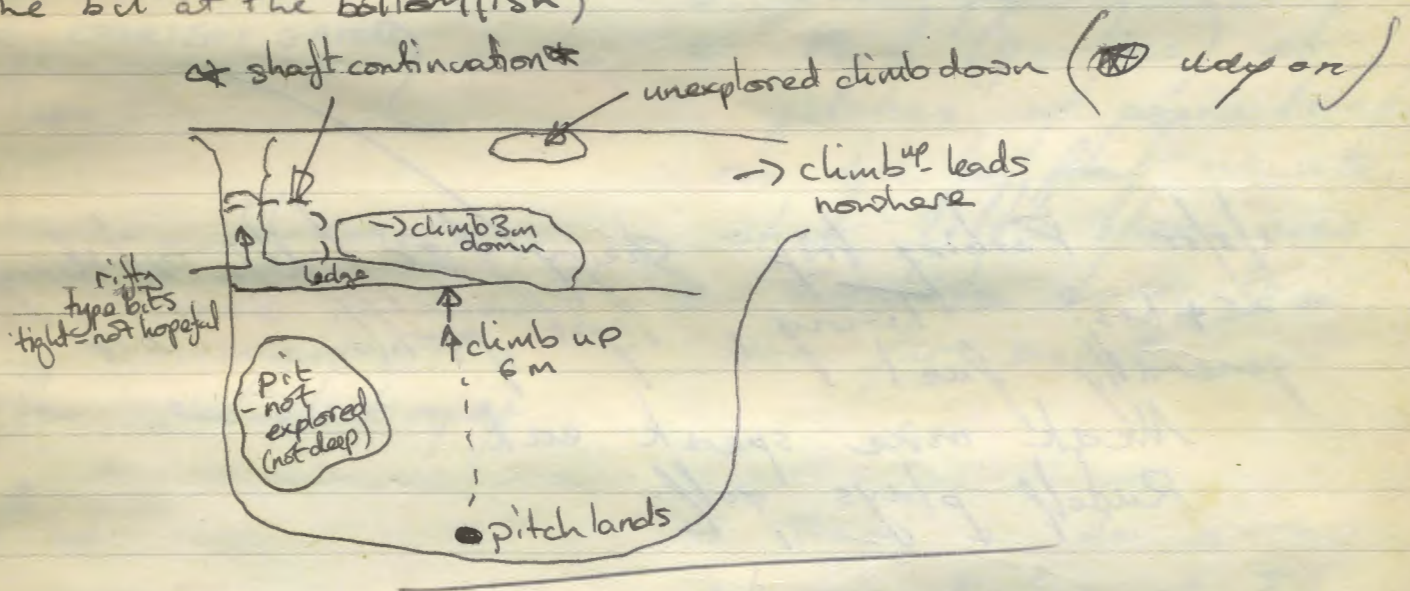 he bit at the bottom (ish)
* shaft continuation *
unexplored climb down (
-> climb up - leads
nowhere
-> climb 3m
down
ledge
rifty
type bits
tight - not hopeful
climb up
6 m
pit
- not
explored
(not deep)
pitch lands